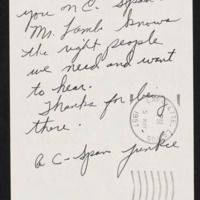 you on C-Span.
Mr. Lamb knows
the right people
we need and want
to hear.
Thanks for being
there.
A C-Span junkie
1997